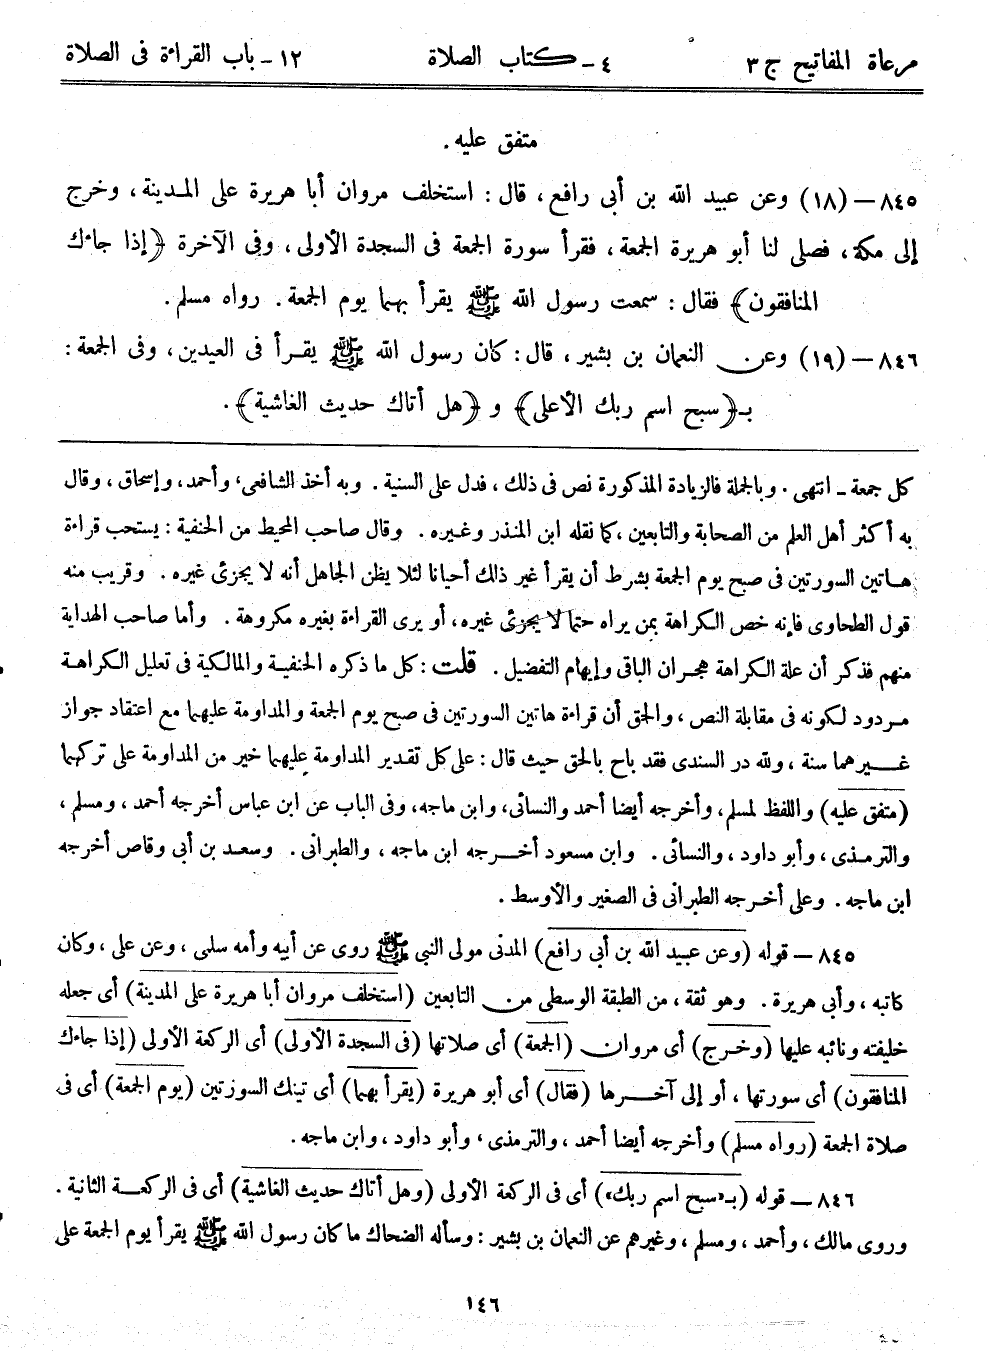 مرعاة المفاتيح ج ٣
٤ـ كتاب الصلاة
١٢ـ باب القراءة فى الصلاة
متفق عليه .
٨٤٥ – (١٨) وعن عبيد الله بن أبى رافع ، قال : استخلف مروان أبا هريرة على المدينة ، وخرج
إلى مكة ، فصلى لنا أبو هريرة الجمعة ، فقرأ سورة الجمعة فى السجدة الأولى ، وفى الآخرة ﴿إذا جاءك
المنافقون﴾ فقال : سمعت رسول الله ﷺ يقرأ بهما يوم الجمعة . رواه مسلم .
٨٤٦ – (١٩) وعن النعمان بن بشير ، قال : كان رسول الله ﷺ يقرأ فى العيدين ، وفى الجمعة :
بـ﴿سبح اسم ربك الأعلى﴾ و ﴿هل أتاك حديث الغاشية﴾ .
كل جمعة ـ انتهى . وبالجملة فالزيادة المذكورة نص فى ذلك ، فدل على السنية . وبه أخذ الشافعى ، وأحمد ، وإسحاق ، وقال
به أكثر أهل العلم من الصحابة والتابعين ، كما نقله ابن المنذر وغيره . وقال صاحب المحيط من الحنفية : يستحب قراءة
هاتين السورتين فى صبح يوم الجمعة بشرط أن يقرأ غير ذلك أحيانا لئلا يظن الجاهل أنه لا يجزئ غيره . وقريب منه
قول الطحاوى فإنه خص الكراهة بمن يراه حتما لا يجزئ غيره ، أو يرى القراءة بغيره مكروهة . وأما صاحب الهداية
منهم فذكر أن علة الكراهة هجران الباقى وإيهام التفضيل . قلت : كل ما ذكره الحنفية والمالكية فى تعليل الكراهة
مردود لكونه فى مقابلة النص ، والحق أن قراءة هاتين السورتين فى صبح يوم الجمعة والمداومة عليهما مع اعتقاد جواز
غيرهما سنة ، ولله در السندى فقد باح بالحق حيث قال : على كل تقدير المداومة عليهما خير من المداومة على تركهما
(متفق عليه) واللفظ لمسلم ، وأخرجه أيضا أحمد والنسائى ، وابن ماجه ، وفى الباب عن ابن عباس أخرجه أحمد ، ومسلم ،
والترمذى ، وأبو داود ، والنسائى . وابن مسعود أخرجه ابن ماجه ، والطبرانى . وسعد بن أبى وقاص أخرجه
ابن ماجه . وعلى أخرجه الطبرانى فى الصغير والأوسط .
٨٤٥ – قوله (وعن عبيد الله بن أبى رافع) المدنى مولى النبى ﷺ روى عن أبيه وأمه سلمى ، وعن على ، وكان
كاتبه ، وأبى هريرة . وهو ثقة ، من الطبقة الوسطى من التابعين (استخلف مروان أبا هريرة على المدينة) أى جعله
خليفته ونائبه عليها (وخرج) أى مروان (الجمعة) أى صلاتها (فى السجدة الأولى) أى الركعة الأولى (إذا جاءك
المنافقون) أى سورتها ، أو إلى آخرها (فقال) أى أبو هريرة (يقرأ بهما) أى تينك السورتين (يوم الجمعة) أى فى
صلاة الجمعة (رواه مسلم) وأخرجه أيضا أحمد ، والترمذى ، وأبو داود ، وابن ماجه .
٨٤٦ – قوله (بـ«سبح اسم ربك») أى فى الركعة الأولى (وهل أتاك حديث الغاشية) أى فى الركعة الثانية .
وروى مالك ، وأحمد ، ومسلم ، وغيرهم عن النعمان بن بشير : وسأله الضحاك ما كان رسول الله ﷺ يقرأ يوم الجمعة على
١٤٦